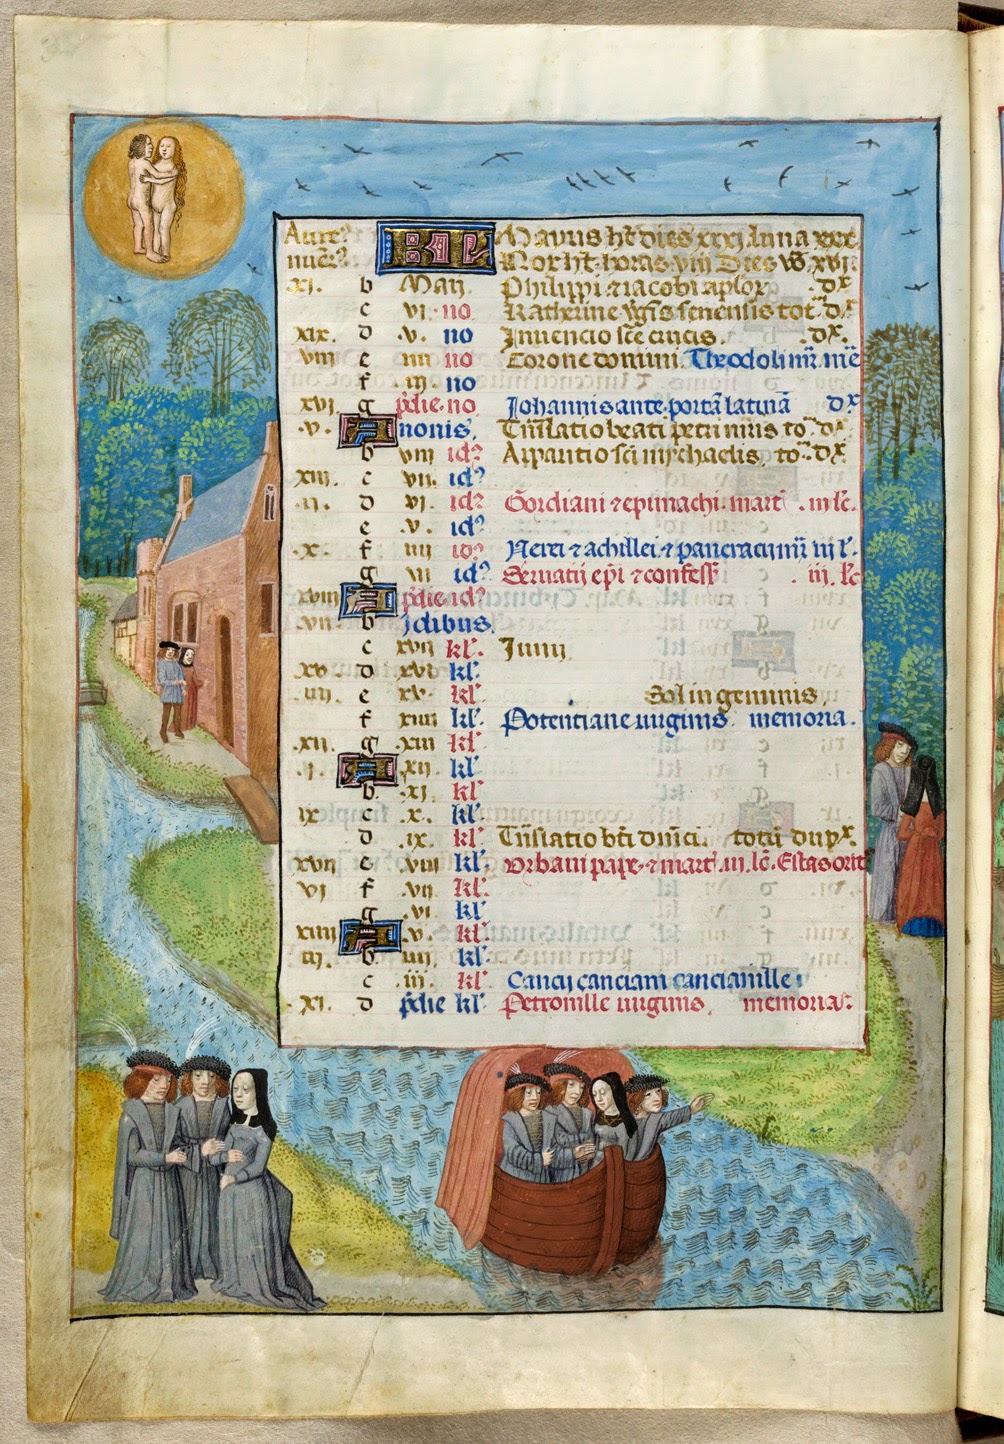 Aure? KAL Mayus ht dies xxxi luna xxx
nuēr? Nox ht horas viii Dies vō xvi
xi. b Maij. Philippi & iacobi aplor dx
c vi no Katherine vgīs senensis tot d.x
xix. d .v. no Inuencio sce crucis. dx.
viii e iiii no Corone domini. Theodoli mr. mē
f .iii no
xvi g pdie no Iohannis ante portā latinā dx
.v. A nonis. Trnslatio beati petri mris to dx
b viii id? Aparitio sci mychaelis. to dx
xiii. c vii. id?
.ii. d vi. id? Gordiani & epimachi mart .iii lc.
e .v. id?
.x. f iiii id? Nerei & achillei & pancracii mr iii l.
g iii id? Seruatii epi & confess .iii. lc
xviii A pdie id?
vii b Idibus.
c xvii kl. Iunij
xv d xvi kl.
iiii. e xv. kl. Sol in geminis.
f xiiii kl. Potentiane uirginis memoria.
xii. g .xiii kl.
.i. A xii. kl.
b. .xi. kl.
ix c .x. kl.
d .ix. kl. Trnslatio bti dnici totū dupx.
xvii e .viii kl. Vrbani pape & mart. iii. lc. Estas orit
vi f .vii. kl.
g .vi. kl.
xiiii A .v. kl.
iii. b iiii. kl.
c .iii. kl. Cancij canciani cancianille
.xi. d pdie kl. Petronille uirginis. memoria.